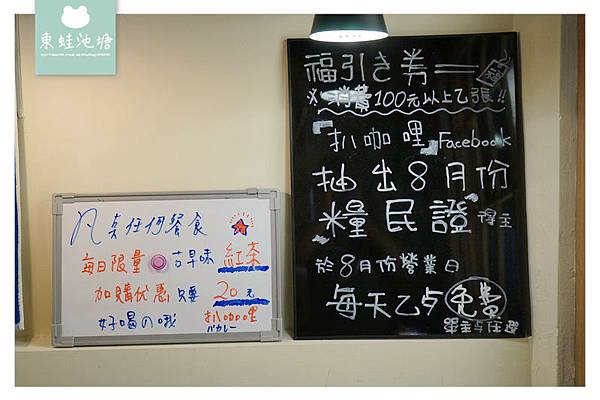 東蛙池塘
福引き券
※消費100元以上乙張!!
扒咖哩 Facebook
抽出8月份
糧民證 得主
於8月份營業日
每天乙点免費
單主点任選
凡点任何餐食
每日限量 古早味 紅茶
加購优惠只要 20元
好喝の哦 扒咖哩
バカレー